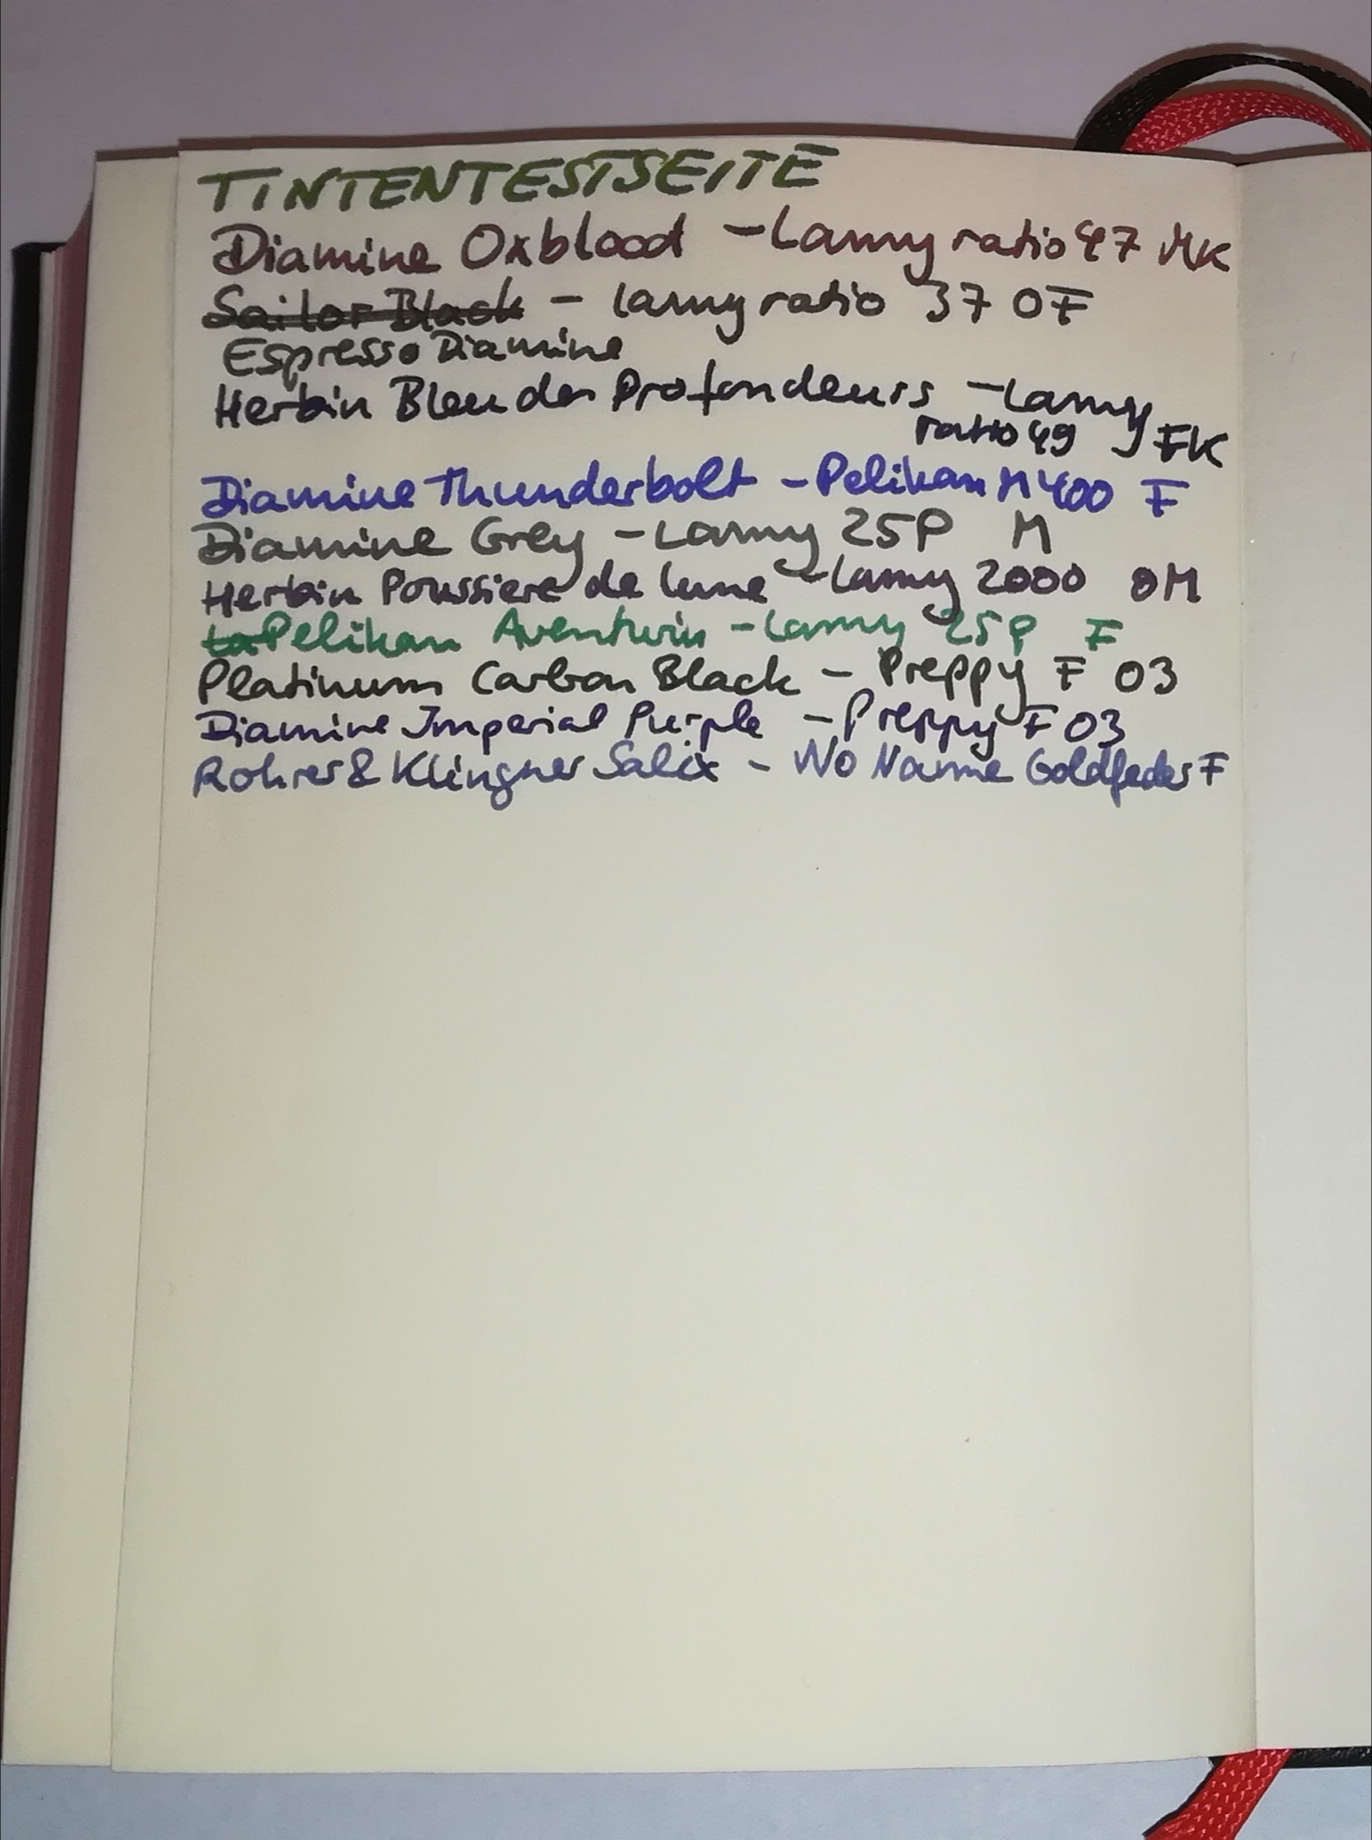 TINTENTESTSEITE
Diamine Oxblood - Lamy ratio 47 MK
Sailor Black - Lamy ratio 37 OF
Espresso Diamine
Herbin Bleu des Profondeurs - Lamy
ratio 49 FK
Diamine Thunderbolt - Pelikan M400 F
Diamine Grey - Lamy 25P M
Herbin Poussiere de lune - Lamy 2000 OM
Pelikan Aventurin - Lamy 25P F
Platinum Carbon Black - Preppy F 03
Diamine Imperial Purple - Preppy F 03
Rohrer & Klingner Salix - No Name Goldfeder F